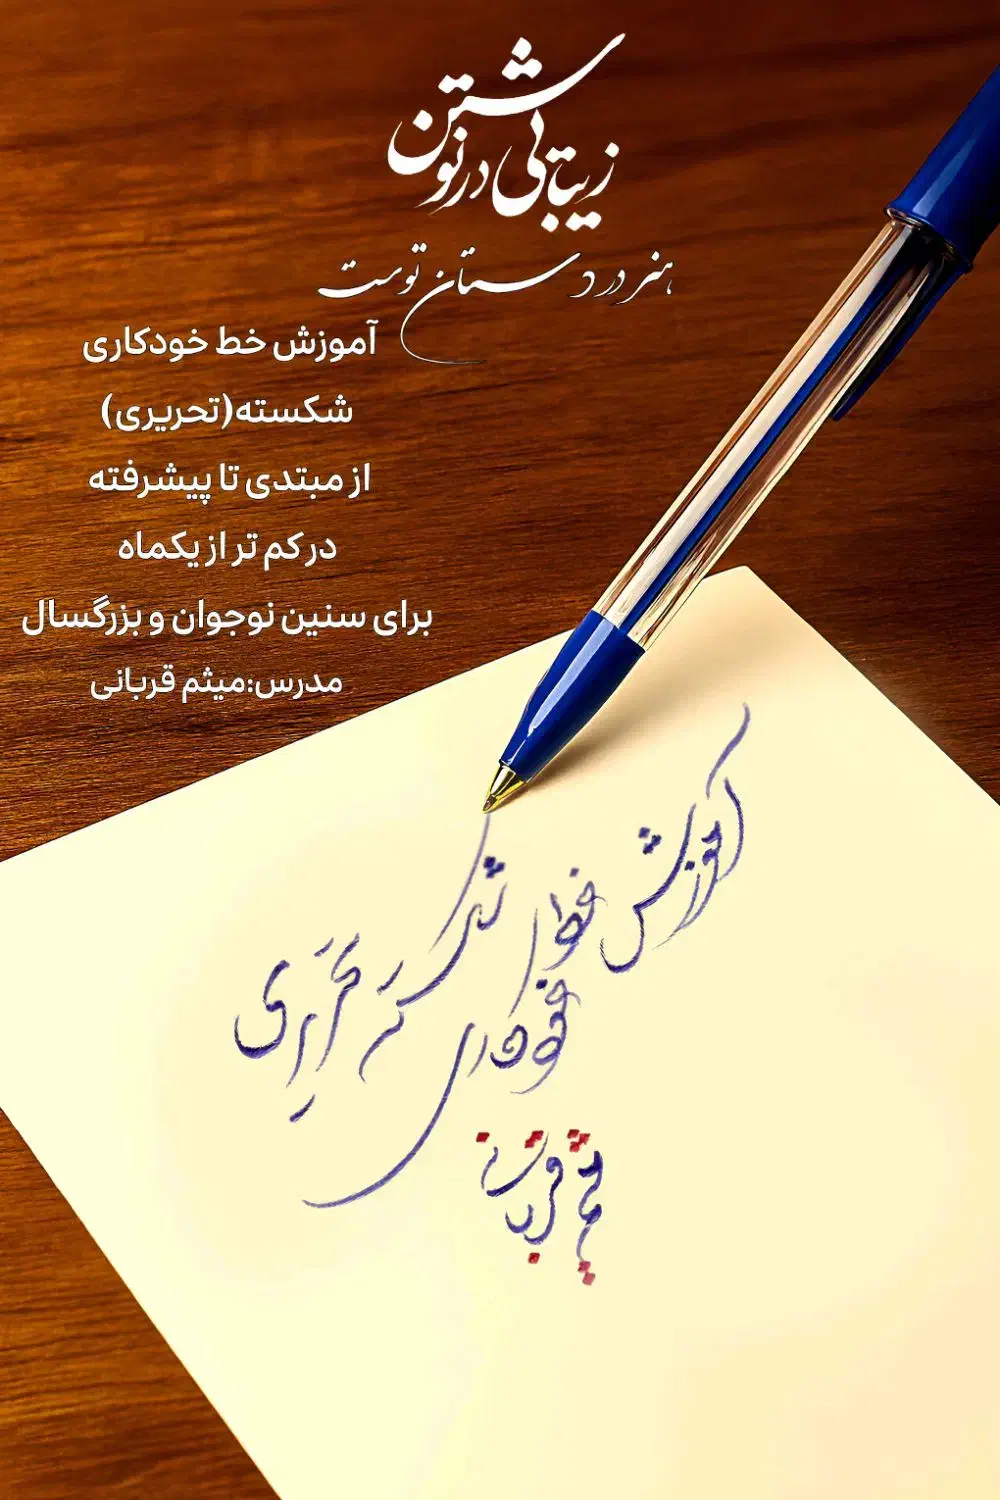 زیبایی در نوشتن
هنر در دستان توست
آموزش خط خودکاری
شکسته(تحریری)
از مبتدی تا پیشرفته
در کم تر از یکماه
برای سنین نوجوان و بزرگسال
مدرس:میثم قربانی
آموزش خط خودکاری
شکسته تحریری
میثم قربانی